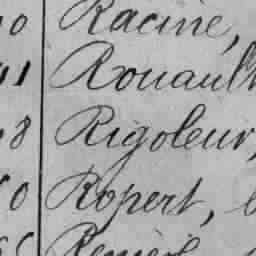 0 Racine,
1 Rouault
8 Rigoleur,
0 Ropert,